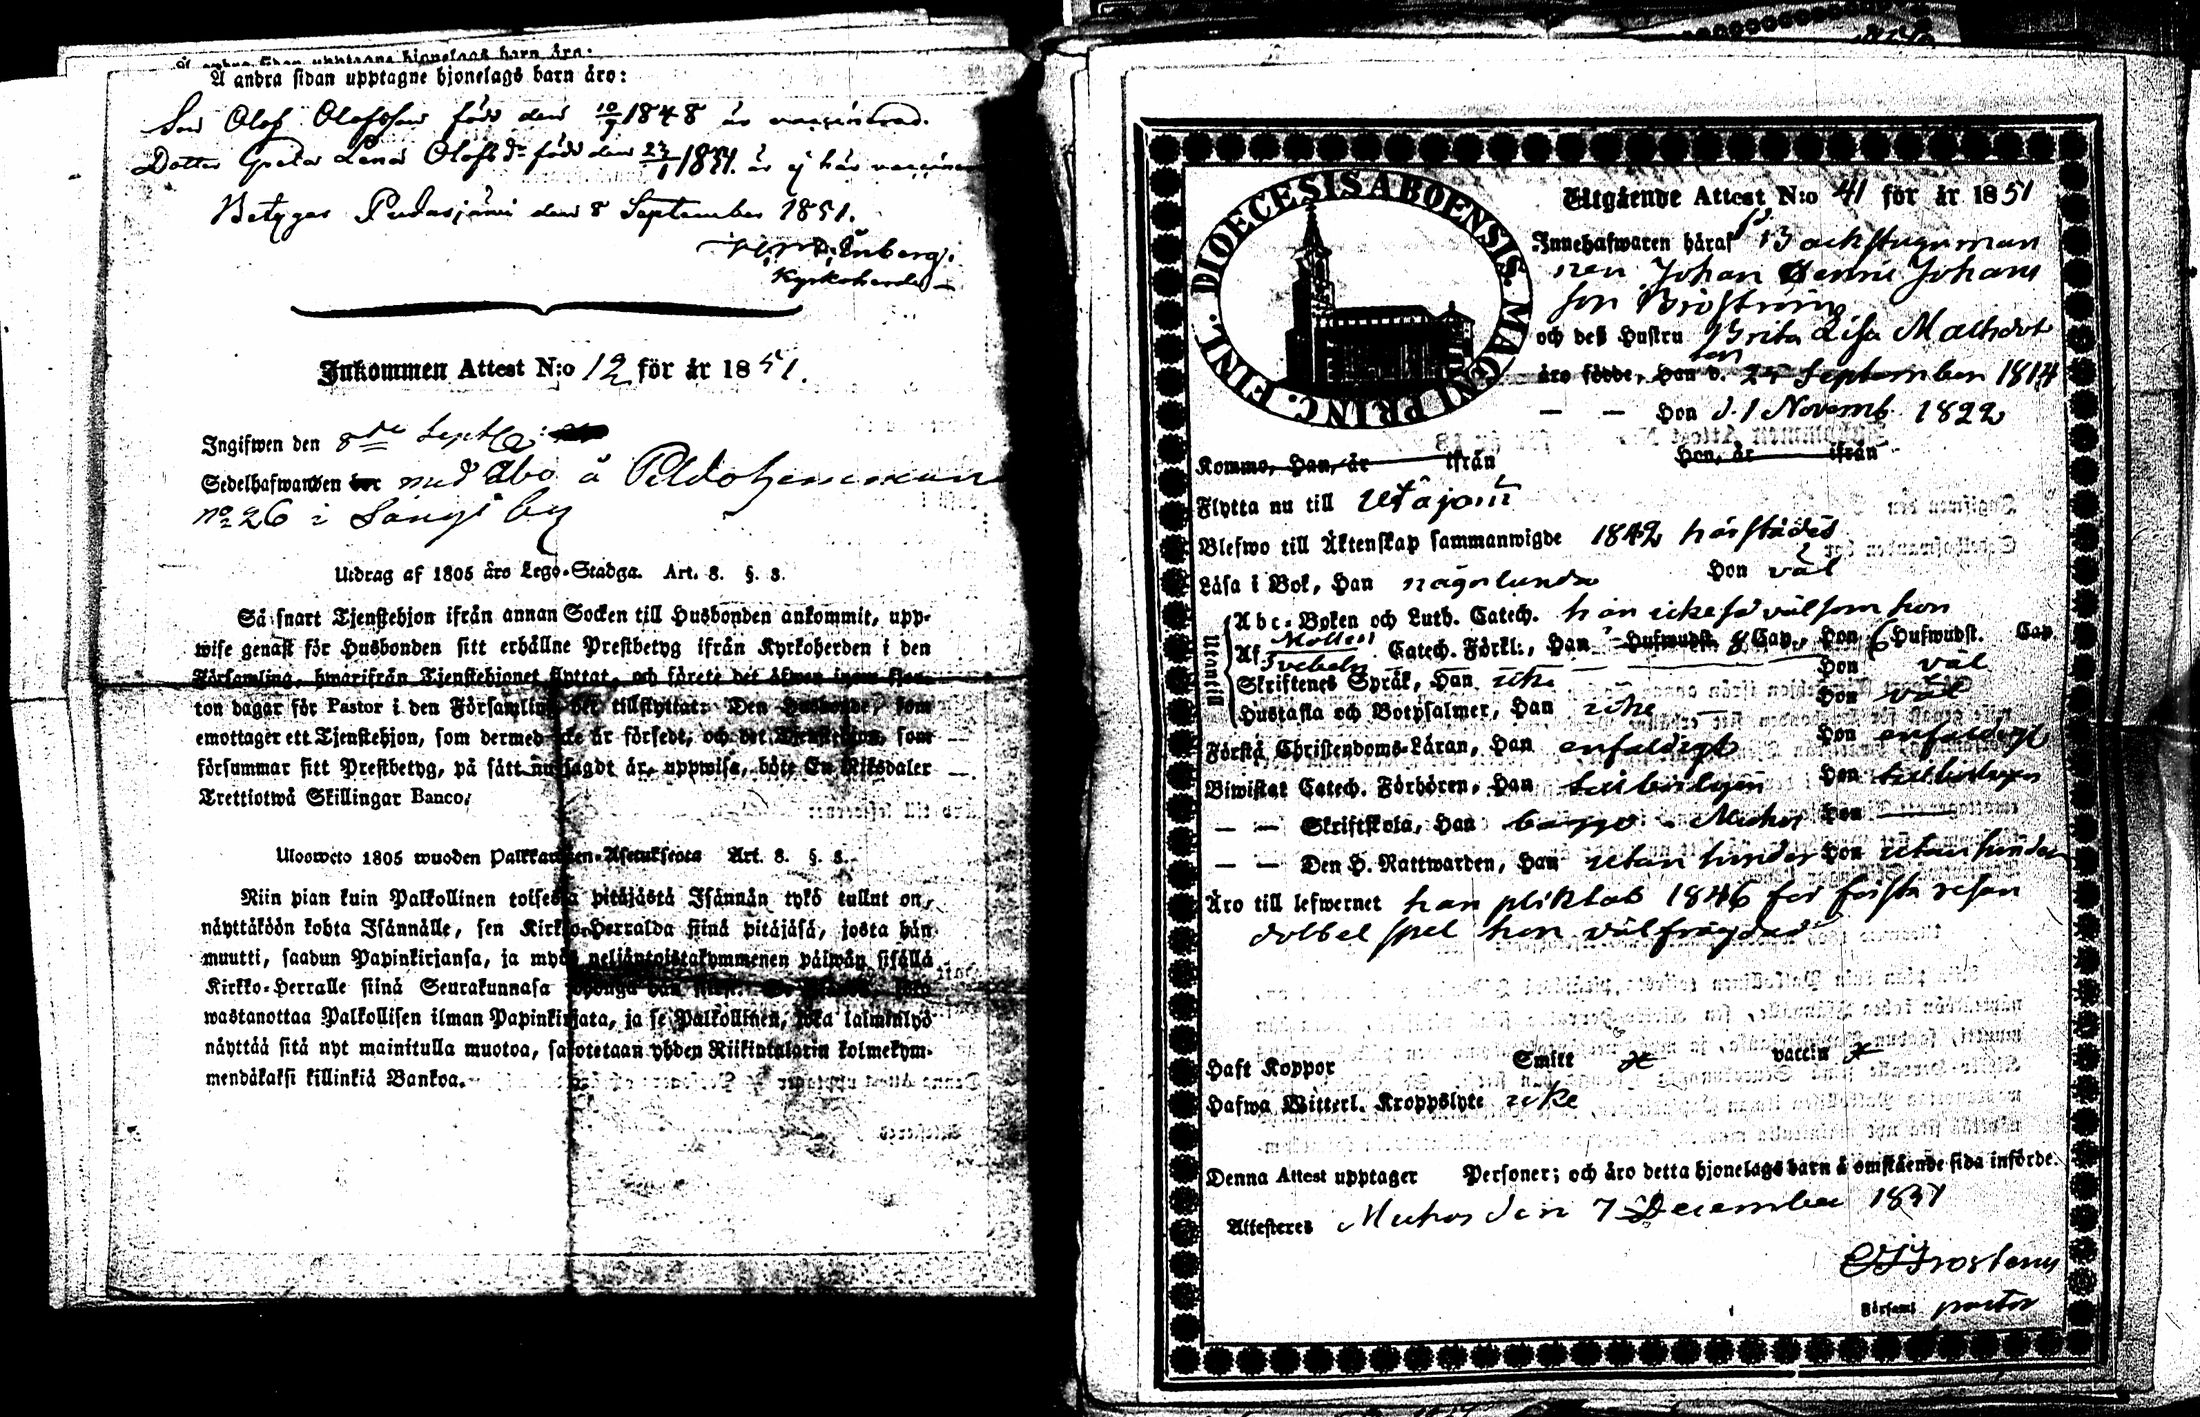 Å andra sidan upptagne hjonelags barn äro:
Å andra sidan upptagne hjonelags barn äro:
Son Olof Olofsson född den 10/9 1848 är vaccinerad.
Dotter Greta Lena Olofsdr född den 23/1 1851. är ej här vaccinerad
Betygar Pudasjärvi den 8 September 1851.
Kyrkoherde
Inkommen Attest N:o 12 för år 1851.
Ingifwen den 8de Sept
Sedelhafwanden bor med Åbo å Peldohemman
No 26 i Sangi by
Utdrag af 1805 års Lego-Stadga. Art. 8. §. 8.
Så snart Tjenstehjon ifrån annan Socken till Husbonden ankommit, upp-
wise genast för Husbonden sitt erhållne Prestbetyg ifrån Kyrkoherden i den
Församling, hwarifrån Tjenstehjonet flyttat, och förete det äfwen inom fjor-
ton dagar för Pastor i den Församling det tillflyttat: Den Husbonde, som
emottager ett Tjenstehjon, som dermed icke är försedt, och det Tjenstehjon, som
försummar sitt Prestbetyg, på sätt nu sagdt är, uppwisa, böte En Riksdaler
Trettiotwå Skillingar Banco.
Ulosweto 1805 wuoden Palkkawäen-Asetuksesta Art. 8. §. 8.
Niin pian kuin Palkollinen toisesta pitäjästä Isännän tykö tullut on,
näyttäköön kohta Isännälle, sen Kirkko-Herralda siinä pitäjäsä, josta hän
muutti, saadun Papinkirjansa, ja myös neljäntoistakymmenen päiwän sisällä
Kirkko-Herralle siinä Seurakunnasa
wastanottaa Palkollisen ilman Papinkirjata, ja se Palkollinen, joka laiminlyö
näyttää sitä nyt mainitulla muotoa, sakotetaan yhden Riikintalarin kolmekym-
mendäkaksi killinkiä Bankoa.
DIOECESIS ABOENSIS. MAGNI PRINC. FINL.
Utgående Attest N:o 41 för år 1851
Innehafwaren häraf Backstuguman
nen Johan Johans
son Broström
och deß Hustru Brita Lisa Mattsdot
ter
äro födde, Han d. 24 September 1814
— — Hon d. 1 Novemb. 1822
Kommo, Han, år ifrån Hon, år ifrån
Flytta nu till Utajärvi
Blefwo till Äktenskap sammanwigde 1842 härstädes
Läsa i Bok, Han någorlunda Hon väl
Utantill
Abc-Boken och Luth. Catech. han icke så väl som hon
Af Möllers Svebelii Catech. Förkl., Han Hufwudst. 8 Cap., Hon 6 Hufwudst. Cap
Skriftenes Språk, Han icke Hon väl
Hustafla och Botpsalmer, Han icke Hon väl
Förstå Christendoms-Läran, Han enfaldigt Hon enfaldigt
Biwistat Catech. Förhören, Han tillbörligen Hon tillbörligen
— — Skriftskola, Han begge i Muhos Hon
— — Den H. Nattwarden, Han utan hinder Hon utan hinder
Äro till lefwernet han pliktat 1846 för första resan
dobbel spel hon välfrägdad
Haft Koppor Smitt vaccin
Hafwa Witterl. Kroppslyte icke
Denna Attest upptager Personer; och äro detta hjonelags barn å omstående sida införde.
Attesteres Muhos den 7 December 1851
Församl pastor